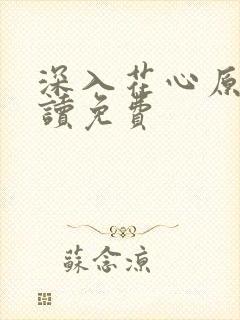 深入花心原
讀免費
蘇念涼